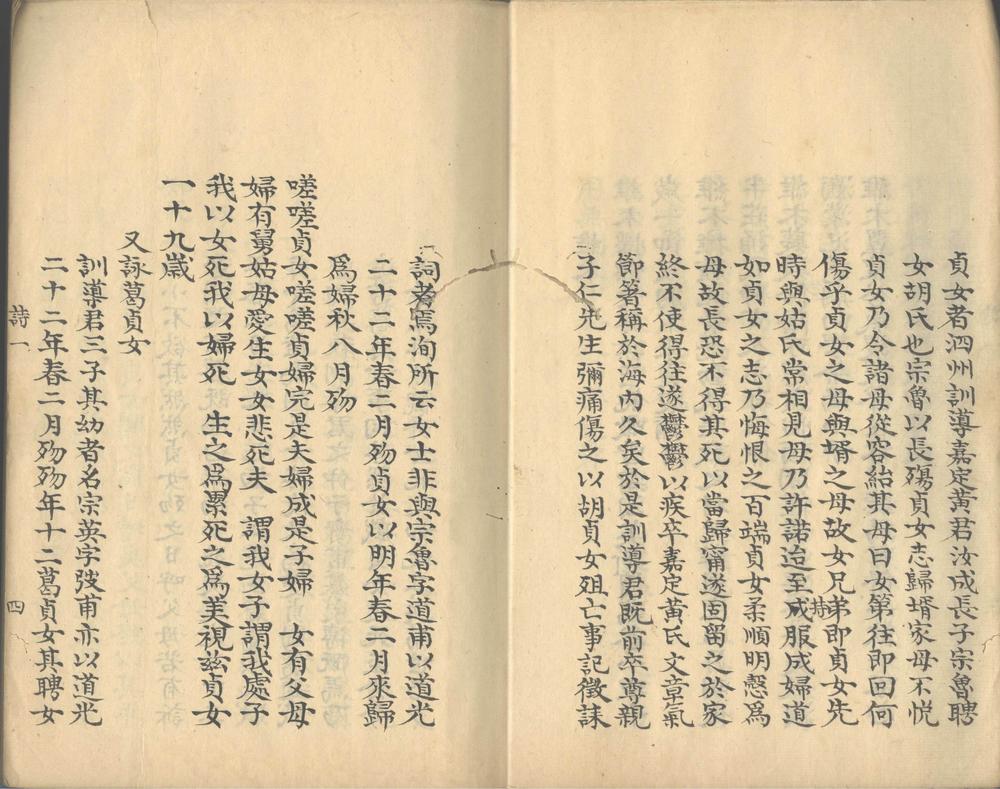 貞女者泗州訓導嘉定黃君汝成長子宗魯聘
女胡氏也宗魯以長殤貞女志歸壻家母不悅
貞女乃令諸母從容紿其母曰女第往即回何
傷乎貞女之母與壻之母故女兄弟即貞女先
時與姑氏常相見母乃許諾迨至持服成婦道
如貞女之志乃悔恨之百端貞女柔順明慤為
母故長恐不得其死以當歸甯遂固留之於家
終不使得往遂鬱鬱以疾卒嘉定黃氏文章氣
節箸稱於海內久矣於是訓導君既前卒尊親
子仁先生彌痛傷之以胡貞女殂亡事記徵誄
詞者焉洵所云女士非與宗魯字道甫以道光
二十二年春二月歾貞女以明年春二月來歸
爲婦秋八月歾
嗟嗟貞女嗟嗟貞婦完是夫婦成是子婦 女有父母
婦有舅姑母愛生女女悲死夫 謂我女子謂我處子
我以女死我以婦死 生之爲累死之爲美視茲貞女
一十九歲
又詠葛貞女
訓導君三子其幼者名宗英字弢甫亦以道光
二十二年春二月歾歾年十二葛貞女其聘女
詩一
四